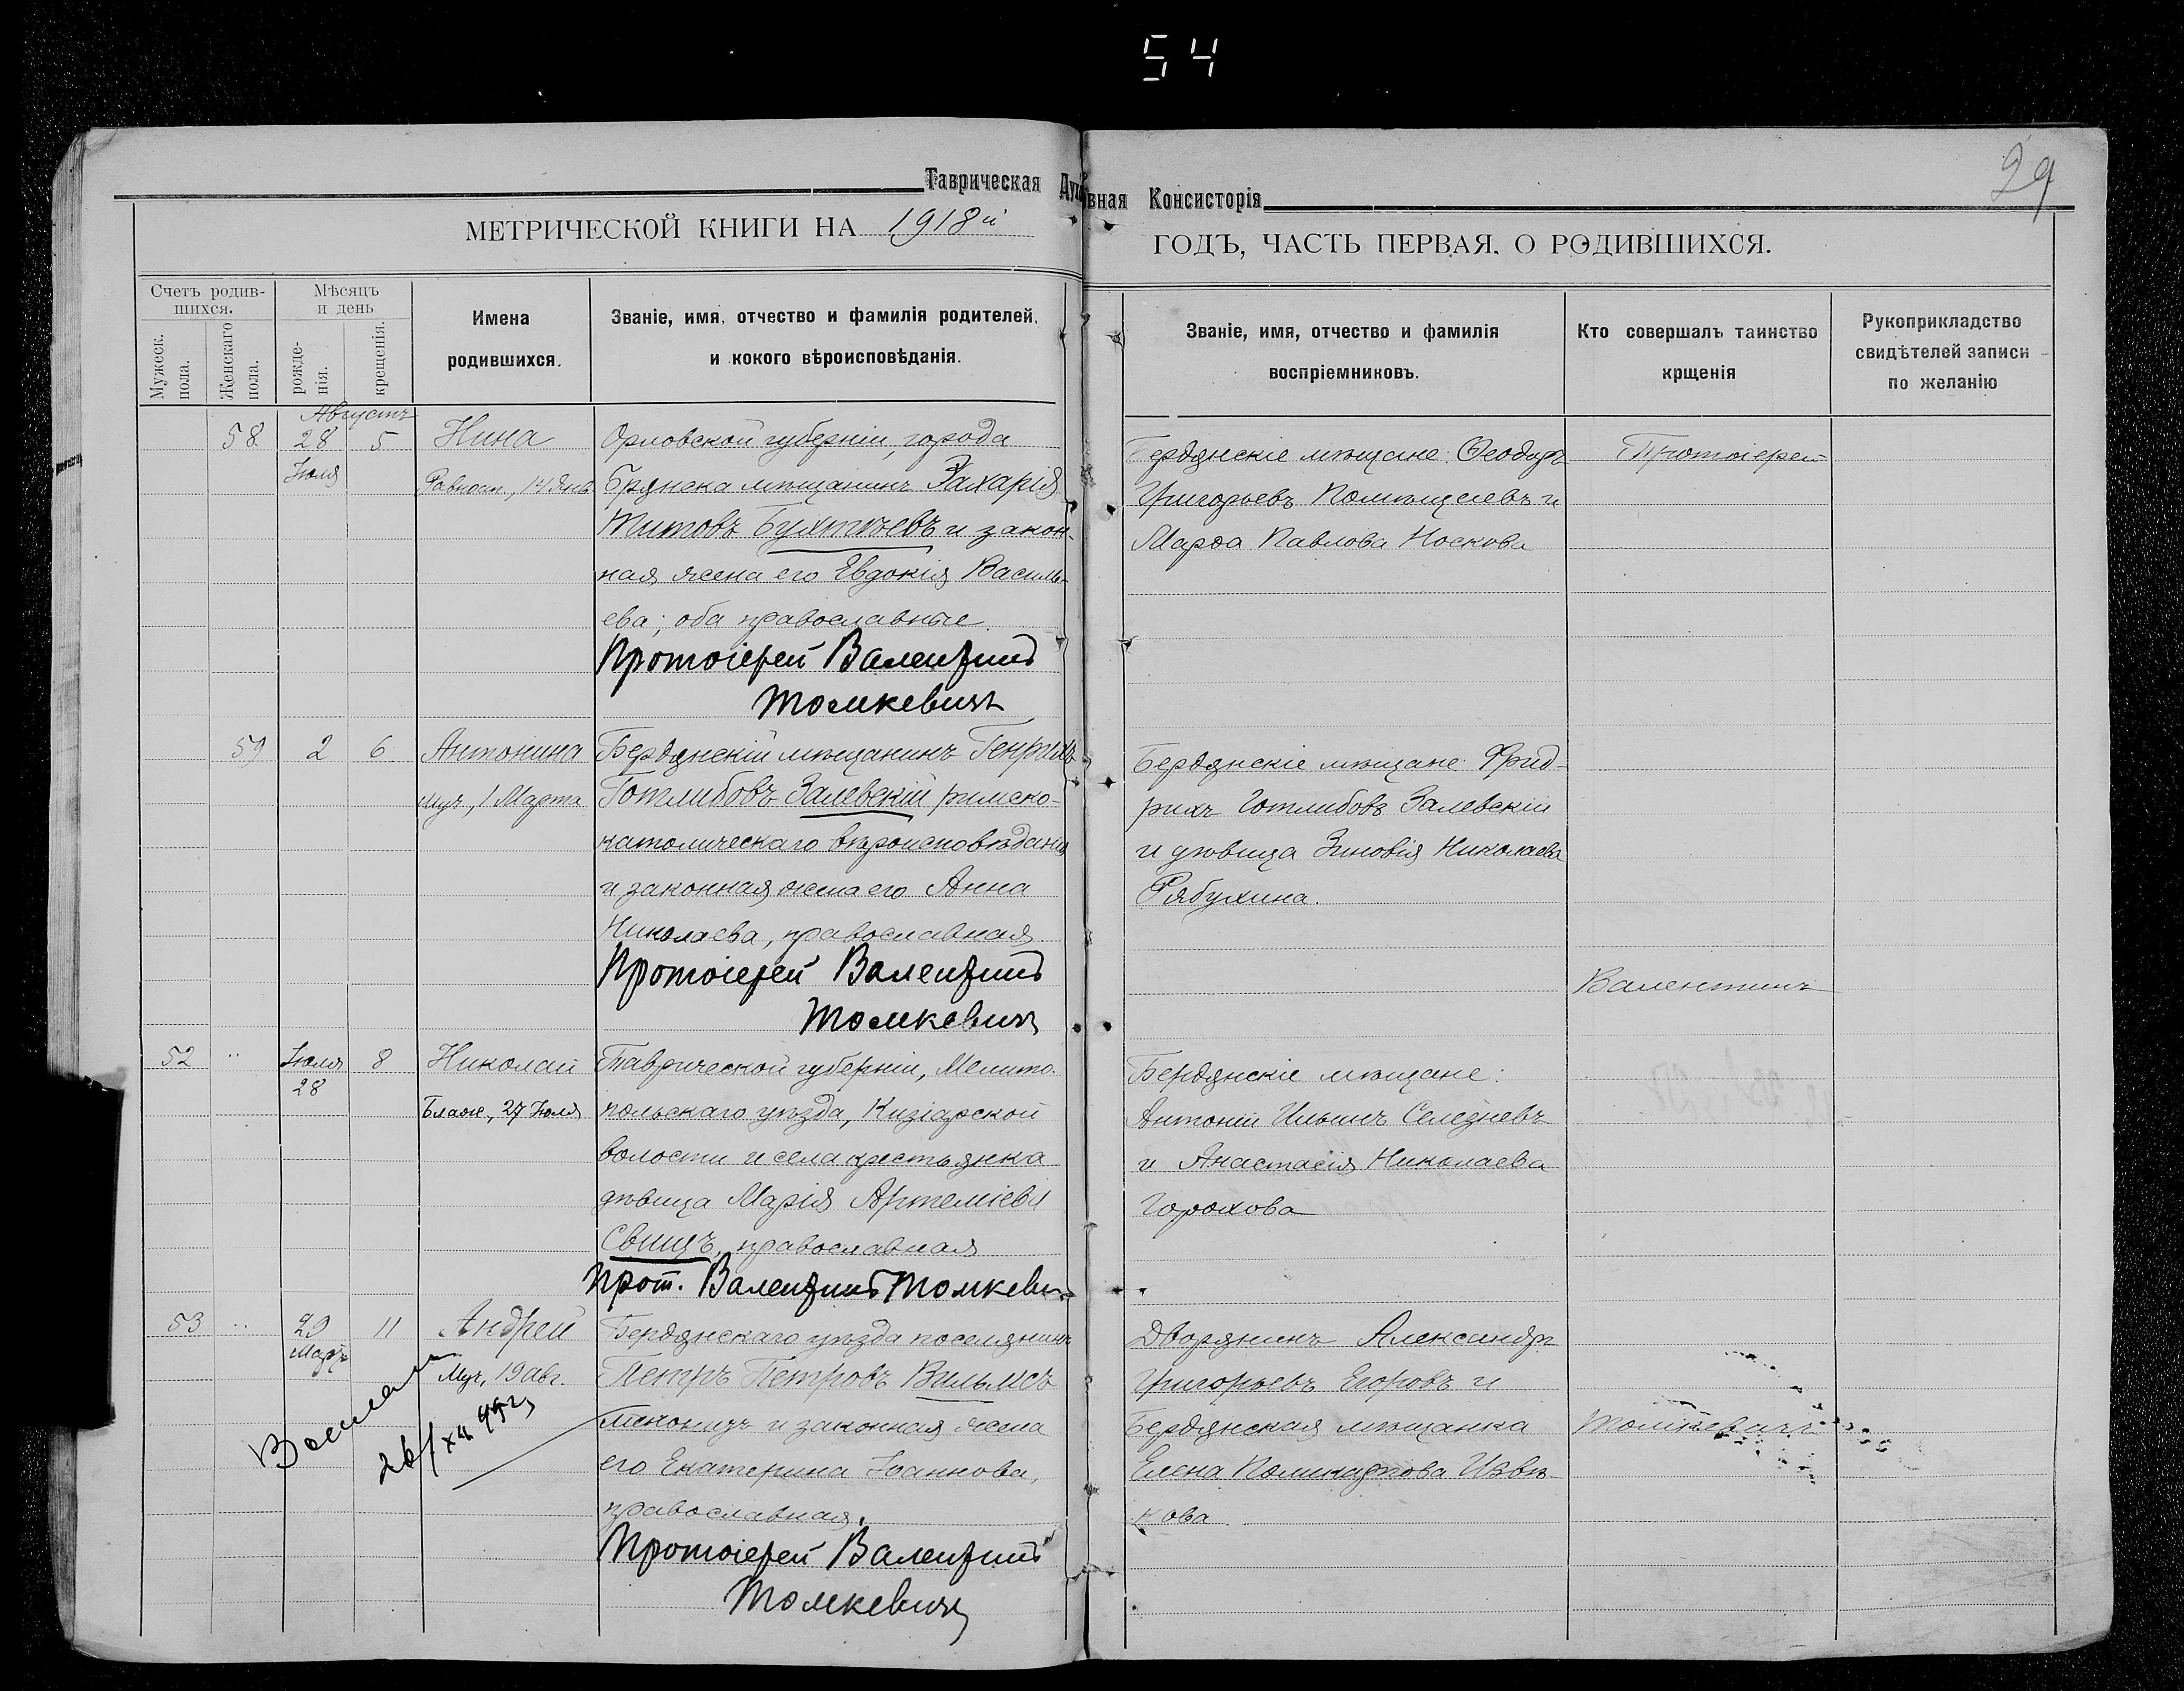 54
Таврическая Духовная Консисторія
29
МЕТРИЧЕСКОЙ КНИГИ НА 1918й
ГОДЪ, ЧАСТЬ ПЕРВАЯ, О РОДИВШИХСЯ.
Счетъ родив-
шихся.
Мужеск. пола.
Женскаго пола.
Мѣсяцъ
и день
рожде-
нія.
крещенія.
Имена
родившихся.
Званіе, имя, отчество и фамилія родителей,
и кокого вѣроисповѣданія.
Званіе, имя, отчество и фамилія
воспріемниковъ.
Кто совершалъ таинство
крщенія
Рукоприкладство
свидѣтелей записи
по желанію
Августъ
58 28 5 Нина
Іюля
Равноап., 14 Янв.
Орловской губерніи, города
Брянска мѣщанинъ Захарія
Титовъ Бухтѣевъ и закон-
ная жена его Евдокія Василь-
ева; оба православные.
Протоіерей Валентинъ
Томкевичъ
Бердянскіе мѣщане: Ѳеодоръ
Григорьевъ Помѣщиевъ и
Марѳа Павлова Носкова
Протоіерей
59 2 6 Антонина
муч., 1 Марта
Бердянскій мѣщанинъ Генрихъ
Готлибовъ Залевскій римско-
католическаго вѣроисповѣданія
и законная жена его Анна
Николаева, православная
Протоіерей Валентинъ
Томкевичъ
Бердянскіе мѣщане: Фрид-
рихъ Готлибовъ Залевскій
и дѣвица Зиновія Николаева
Рябухина.
Валентинъ
52 " Іюля 8 Николай
28
Блаж., 27 Іюля
Таврической губерніи, Мелито-
польскаго уѣзда, Кизіарской
волости и села крестьянка
дѣвица Марія Артеміева
Свищъ, православная
Прот. Валентинъ Томкевичъ
Бердянскіе мѣщане:
Антоній Ильинъ Селезневъ
и Анастасія Николаева
Горохова
53 " 29 11 Андрей
Мартъ
Муч. 19 авг.
26/XII 45 г.
Бердянскаго уѣзда поселянинъ
Петръ Петровъ Вильмсъ
менонитъ и законная жена
его Екатерина Іоаннова,
православная.
Протоіерей Валентинъ
Томкевичъ
Дворянинъ Александръ
Григорьевъ Егоровъ и
Бердянская мѣщанка
Елена Поликарпова Извѣ-
кова
Томкевичъ